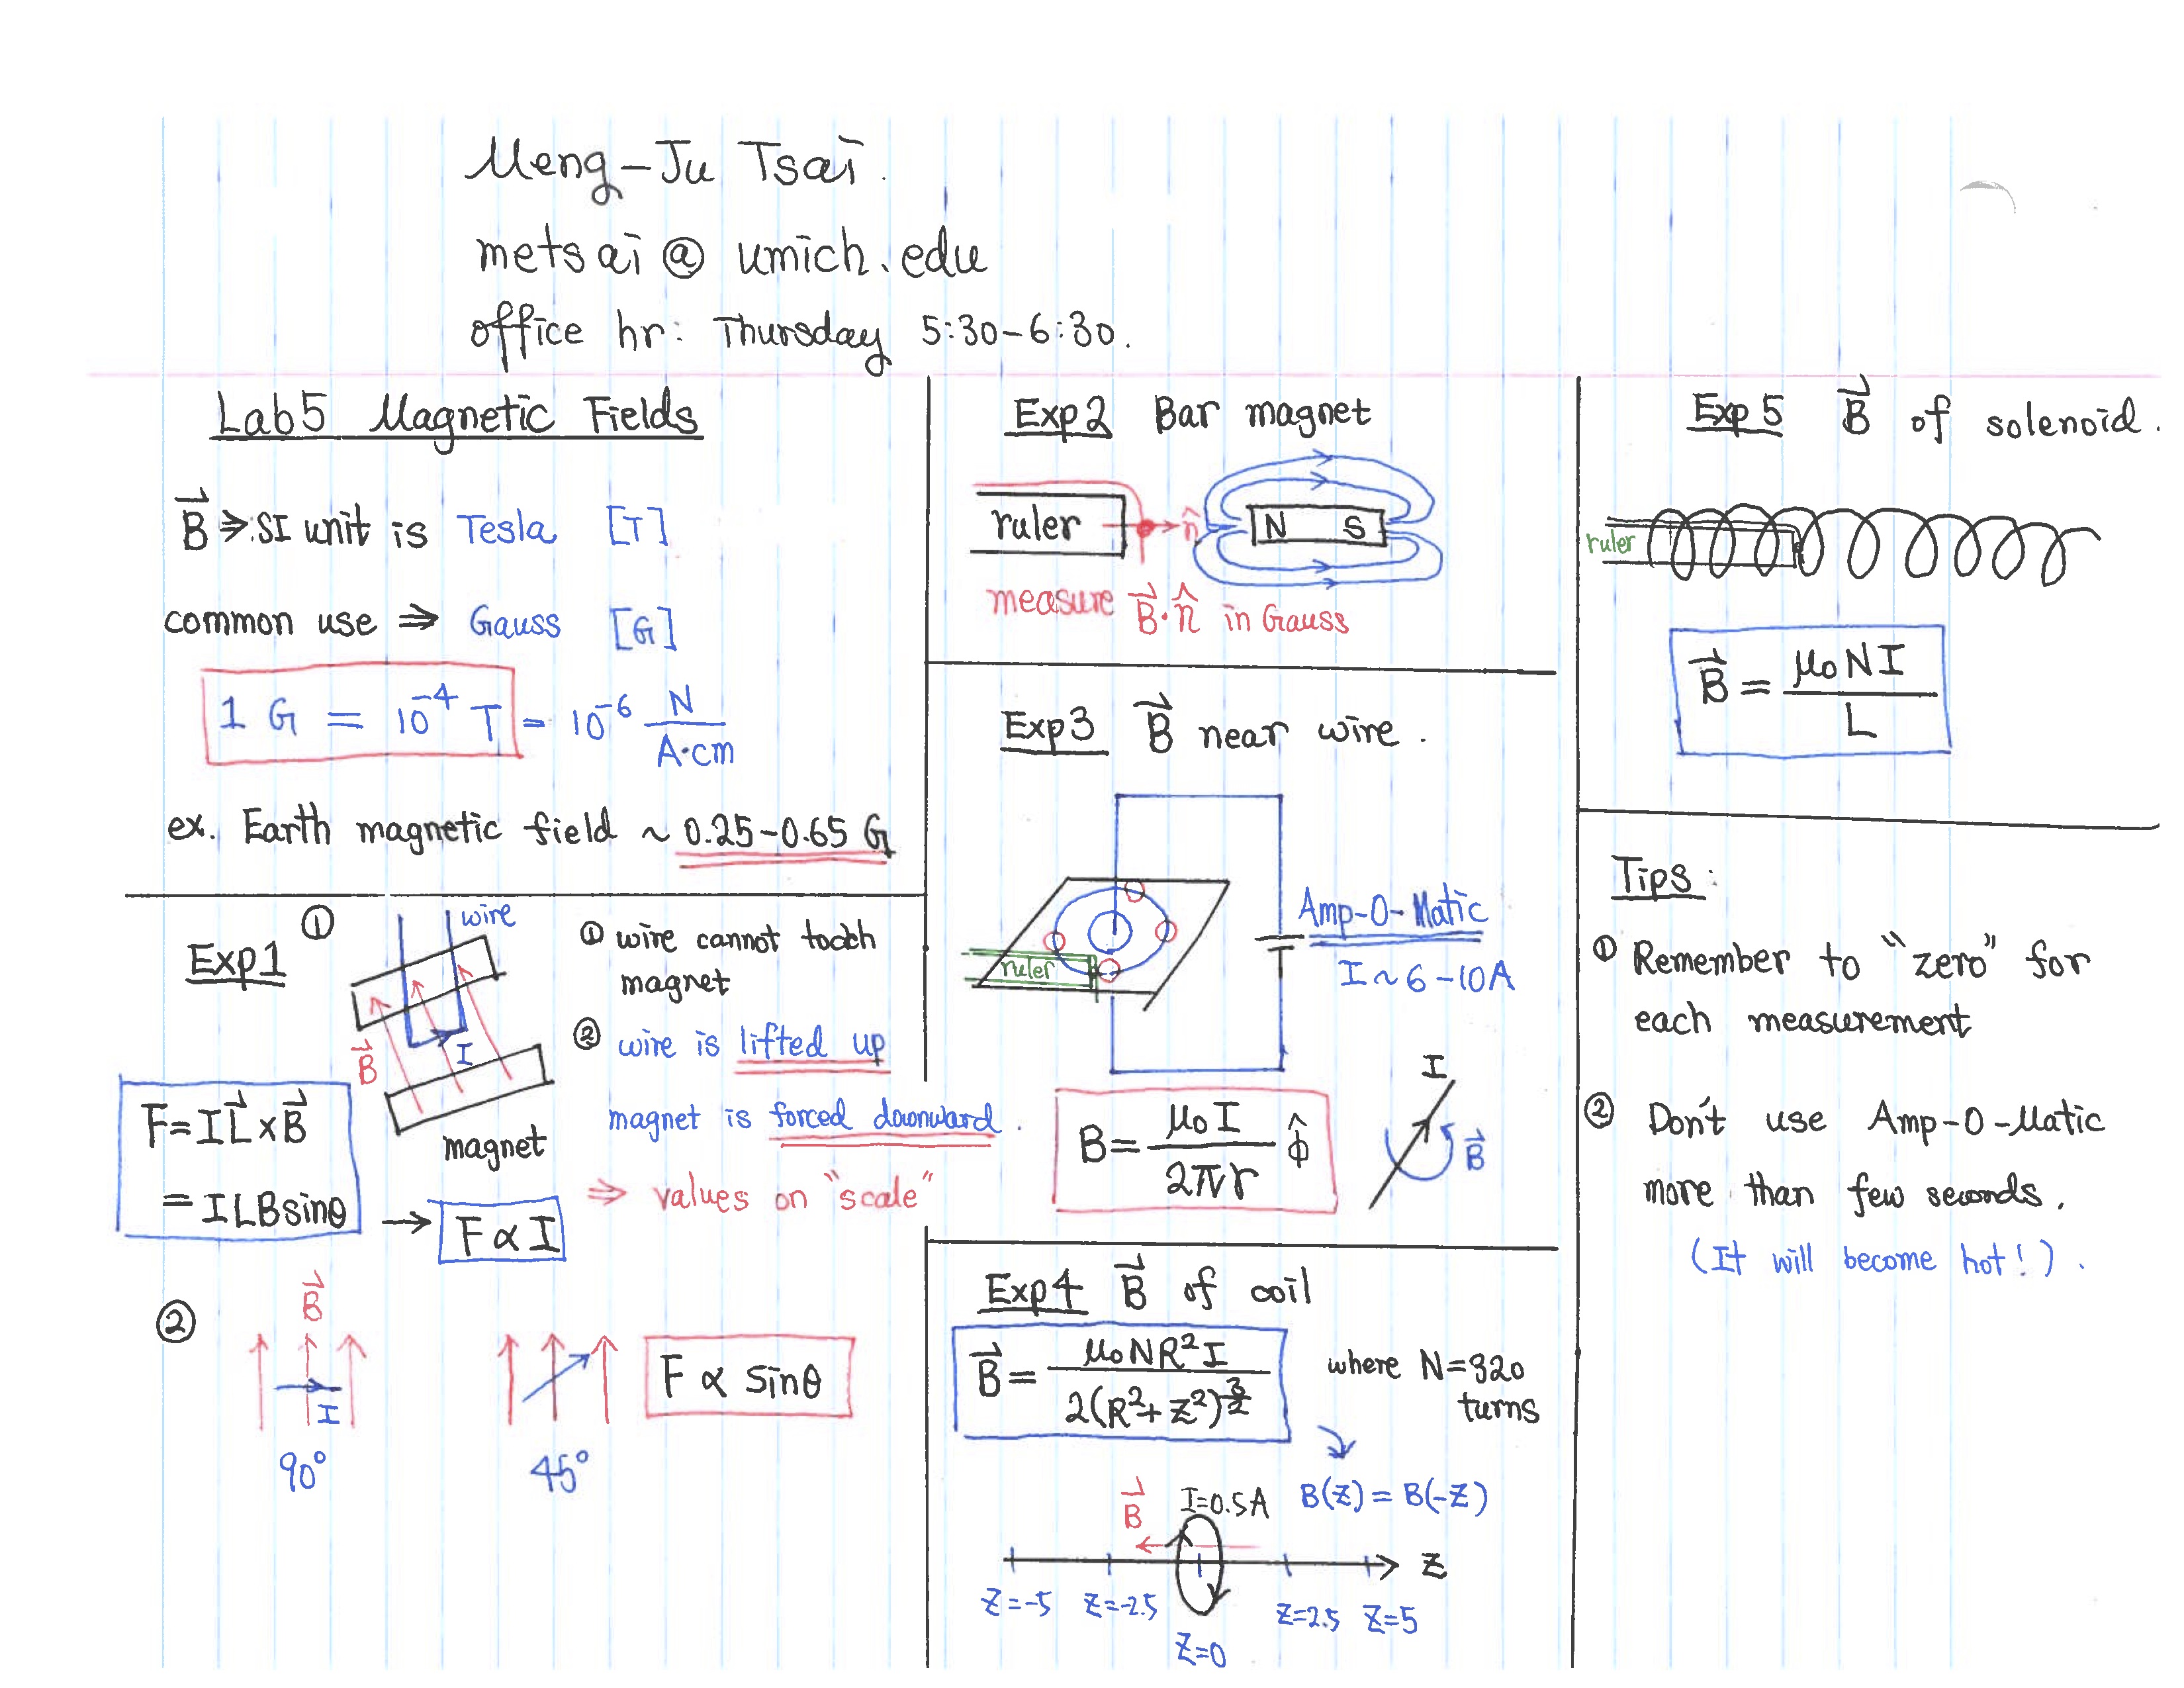 Meng-Ju Tsai.
metsai@umich.edu
office hr: Thursday 5:30-6:30.
Lab5 Magnetic Fields
B⃗ ⇒ SI unit is Tesla [T]
common use ⇒ Gauss [G]
1 G = 10⁻⁴ T = 10⁻⁶ N/(A·cm)
ex. Earth magnetic field ~ 0.25-0.65 G
Exp1
①
wire
B⃗
I
magnet
① wire cannot touch
magnet
② wire is lifted up
magnet is forced downward.
⇒ values on "scale"
F=IL⃗×B⃗
=ILBsinθ
→ F∝I
②
B⃗
I
90°
45°
F ∝ sinθ
Exp2 Bar magnet
ruler
n̂
N S
measure B⃗·n̂ in Gauss
Exp3 B⃗ near wire.
ruler
Amp-O-Matic
I~6-10A
B= μ₀I/2πr φ̂
I
B⃗
Exp4 B⃗ of coil
B⃗= μ₀NR²I/2(R²+Z²)^(3/2)
where N=320
turns
B(Z)=B(-Z)
B⃗
I=0.5A
Z
Z=-5 Z=-2.5 Z=0 Z=2.5 Z=5
Exp5 B⃗ of solenoid.
ruler
B⃗= μ₀NI/L
Tips:
① Remember to "zero" for
each measurement
② Don't use Amp-O-Matic
more than few seconds.
(It will become hot!).